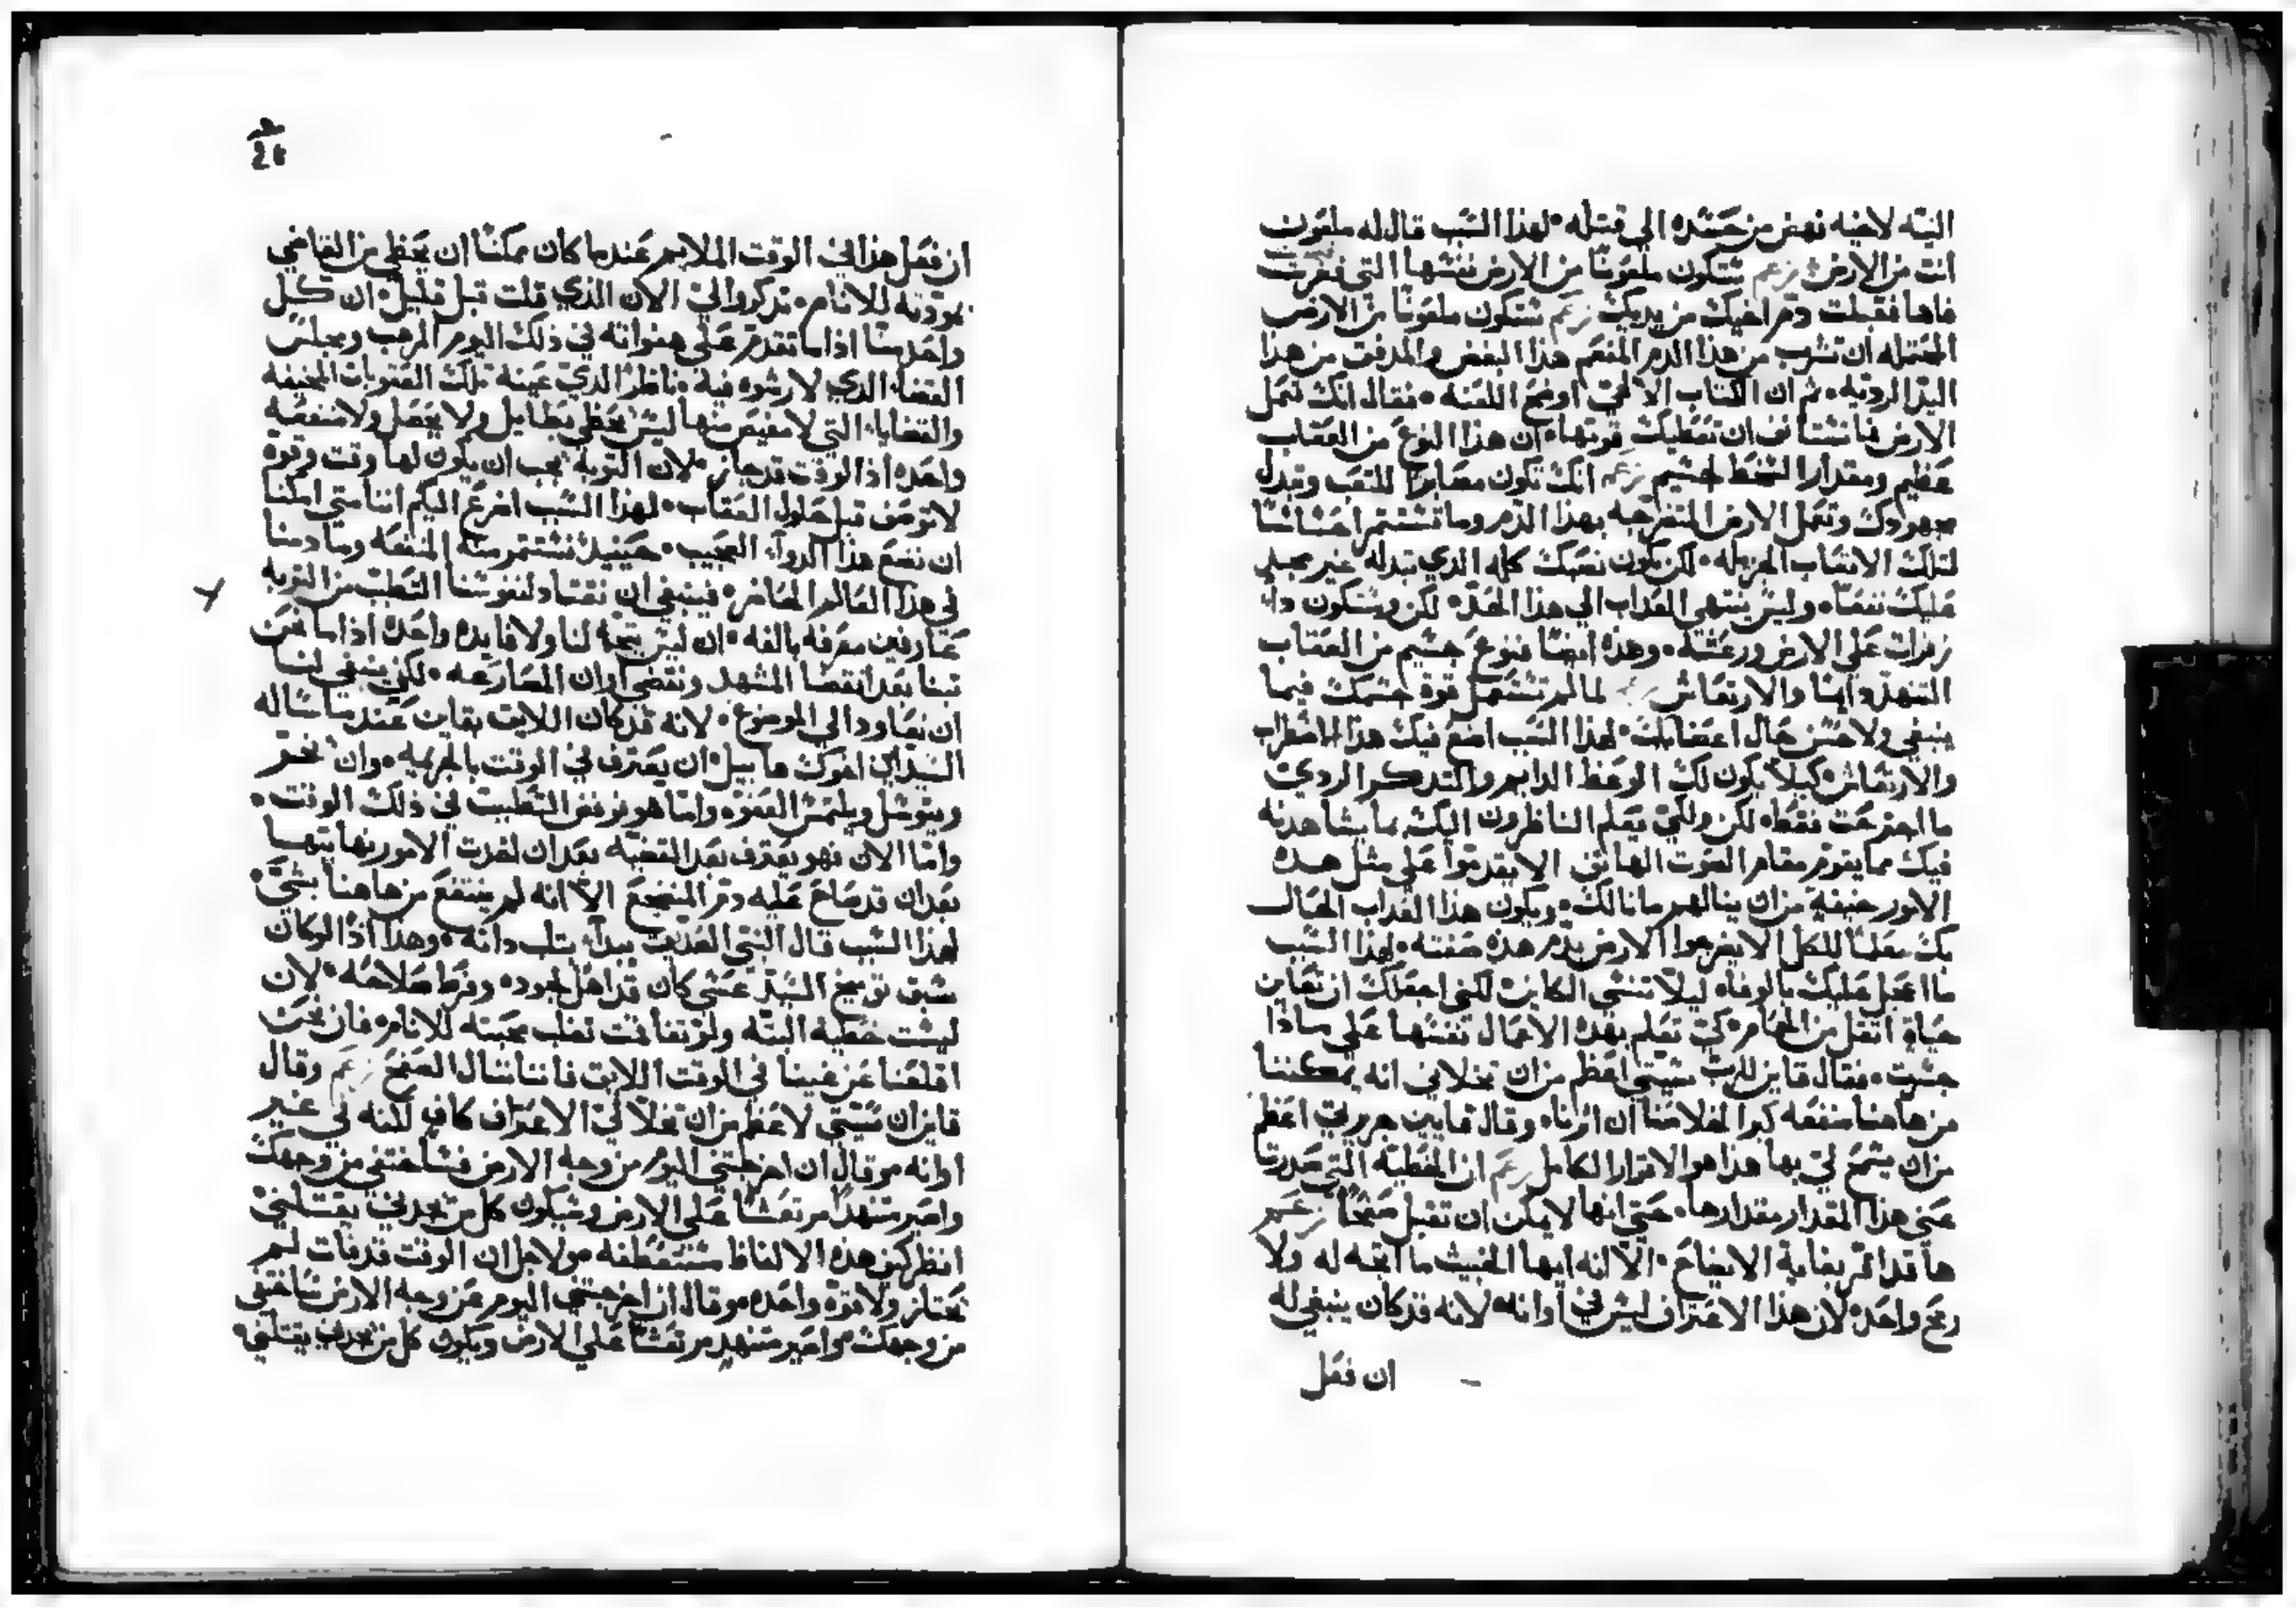 البته لاخيه نهض من حسده الي قتله • لهذا السبب قال له ملعون
انت من الارض زعم ستكون ملعونًا من الارض نفسها التي فغرت
فاها فقبلت دم اخيك من يديك زعم ستكون ملعونًا من الارض
المحتمله ان تشرب من هذا الدم المفعم هذا البغض والمدفق من هذا
اليد الرديه • ثم ان الكتاب الالهي اوضح اللعنه • فقال انك تعمل
الارض فما تستانف ان تعطيك قوتها • ان هذا النوع من العقاب
عظيم ومقدار السخط جسيم زعم انك تكون مصابرًا للتعب وتبدل
مجهودك وتعمل الارض المتضرجه بهذا الدم وما تستتمر احساسًا
لتلك الاتعاب الجزيله • لكن يكون تعبك كله الذي تبدله غير مجدي
عليك نفعًا • وليس ينتهي العداب الي هذا الحد • لكن وستكون دا
زفرات علي الارض ورعشة • وهذه ايضًا فنوع جسيم من العقاب
التنهد دايمًا والارتعاش زعم لما لم تستعمل قوة جسمك فيما
ينبغي ولا حسن حال اعضايك • لهذا السبب اضع فيك هذا الاضطراب
والارتعاش • كيلا يكون لك الوعظ الدايم والتدكر الردي
ما اجترعت فقط • لكن ولكي يعلم الناظرون اليك بما يشاهدونه
فيك مما يقوم مقام الصوت الهاتف الا يقدموا علي مثل هده
الامور خيفة من ان ينالهم ما نالك • ويكون هذا العداب الحال
بك معلمًا للكل الا يضرجوا الارض بدم هذه صفته • لهذا السبب
ما اعجل عليك بالوفاه ليلا تنسي الكاين لكني اجعلك ان تعاين
حياة اتقل من الحمام • كي تعلم بهده الاعمال نفسها علي ماذا
جسرت • فقال قاين للرب سيتي اعظم من ان تخلاني انه يمكننا
من هاهنا منفعه كبرا لخلاصنا ان اثرنا • وقال قايين جريرتي اعظم
من ان يسمح لي بها هذا هو الاقرار الكامل زعم ان الخطيه التي صدرت
عني هذا المقدار مقدارها • حتي انها لا يمكن ان تقبل صفحًا زعم
ها قد اقر بغاية الايضاح • الا انه ايها الخبيث ما اتجه له ولا
ربح واحد • لان هذا الاعتراف ليس في اوانه • لانه قد كان ينبغي له
ان فعل
ان فعل هذا في الوقت الملايم عندما كان ممكنًا ان يحظي من القاضي
بمودته للانام • تدكروا لي الان الذي قلت قبل قليل • ان كل
واحد منا اذا ما تقدم علي هفواته في ذلك اليوم المرهب ومجلس
القضا الدي لا رشوه فيه • ناظرًا الدي عينه تلك العقوبات المخيفه
والقضايا التي لا مفيص منها ليس يحظي بطايل ولا يحصل ولا منفعه
واحده اذ الوقت قد جاز • لان التوبه يجب ان يكون لها وقت وقوة
لا توصف قبل حلول العقاب • لهذا السبب اضرع اليكم اننا متي امكننا
ان نضع هذا الدوآ العجيب • حينيد نستتمر منه المنفعه وما دمنا
في هذا العالم الحاضر • فينبغي ان نقتاد لنفوسنا التطبب من التوبه
عارفين معرفه بالغه • ان ليس يتجه لنا ولا فايده واحده اذا ما نحن
تبنا بعد انقضا المشهد وتقضي اوان المصارعه • لكن ينبغي لنا
ان نعاود الي الموضوع • لانه قد كان اللايق بقاين عندما ساله
السيد اين اخوك هابيل ان يعترف في الوقت بالجريمه • وان يخر
ويتوسل ويلتمس العفوه واما هو فرفض التطبيب في ذلك الوقت •
واما الان فهو يعترف بعد القضيه بعد ان لفرت الامور نهايتها
بعد ان قد صاح عليه دم المنفجع الا انه لم ينتفع من هاهنا بشي •
لهذا السبب قال النبي الصديق مبدأ بتلب داته • وهذا اذًا لو كان
سبق توبيخ السيد عسي كان قد اهل لجوده وفرط صلاحه • لان
ليست خطيه البته ولو تفاقمت تغلب محبته للانام • فان نحن
اقلعنا عن غيينا في الوقت اللايق فاننا ننال الصفح زعم وقال
قاين ان سيتي لاعظم من ان تخلا لي الاعتراف كافٍ لكنه في غير
اوانه • وقال ان اخرجتني اليوم من وجه الارض فساختفي من وجهك
واصير متنهدًا مرتعشًا علي الارض وسيكون كل من يجدني يقتلني
انظر كيف هذه الالفاظ مستعطفه • ولاجل ان الوقت قد فات لم
تحتاز ولا قوة واحده • وقال ان اخرجتني اليوم عن وجه الارض ساختفي
من وجهك • واصير متنهد مرتعشًا علي الارض ويكون كل من يجدني يقتلني •